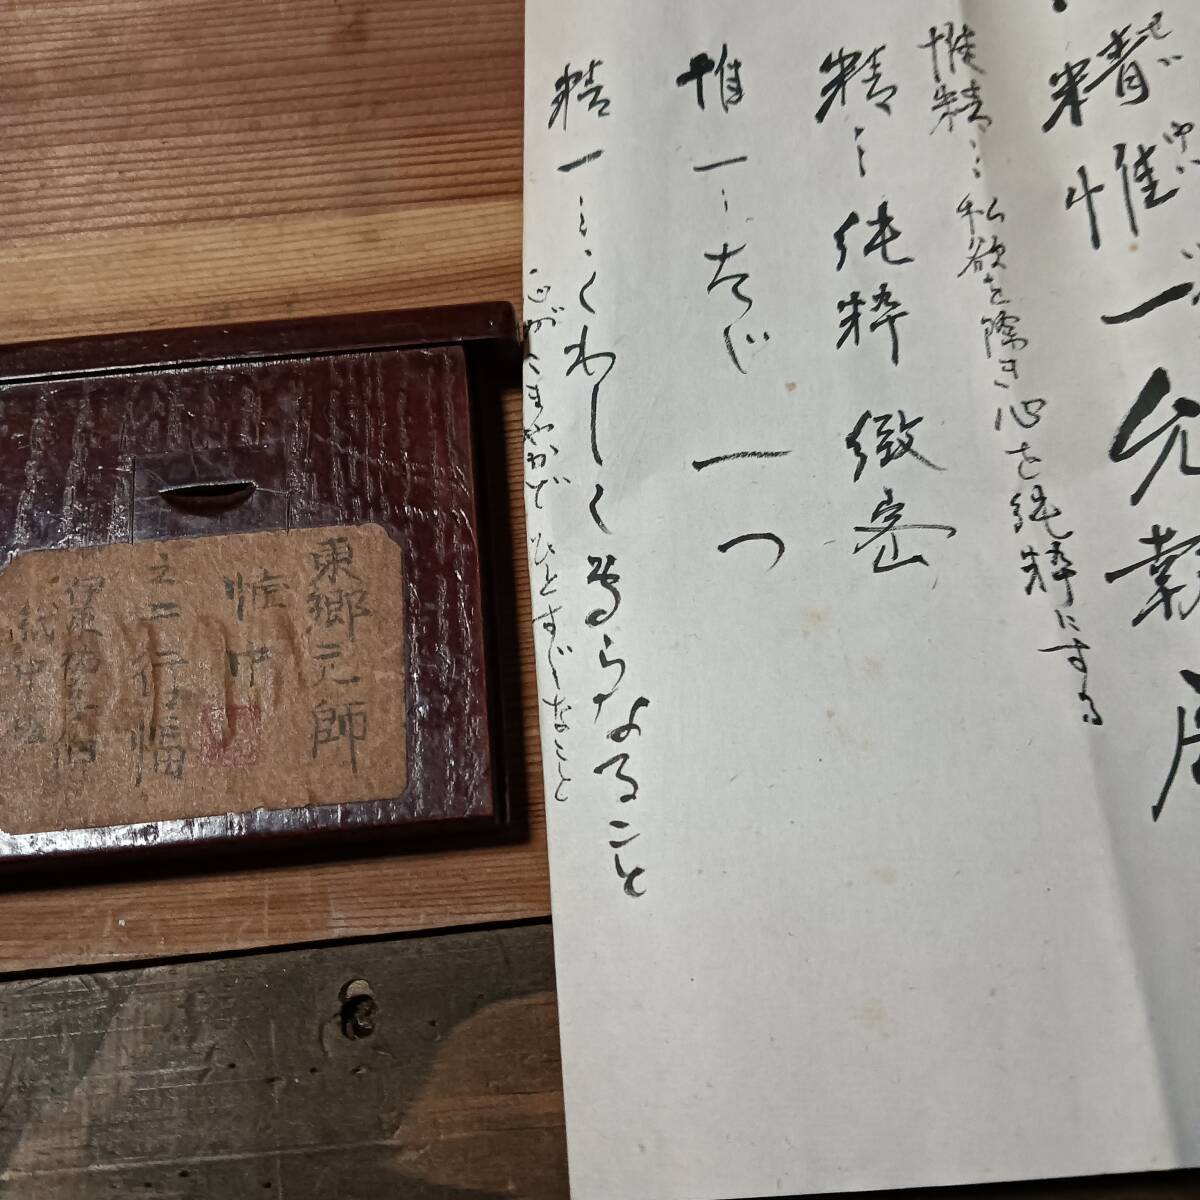 精惟一允執厥
せい
惟精…私欲を除き心を純粋にする
精…純粋 緻密
惟一…たゞ 一つ
精一…くわしく専らなること
心がこまやかでひとすじなこと
東郷元師
惟中
之二行幅
紙中